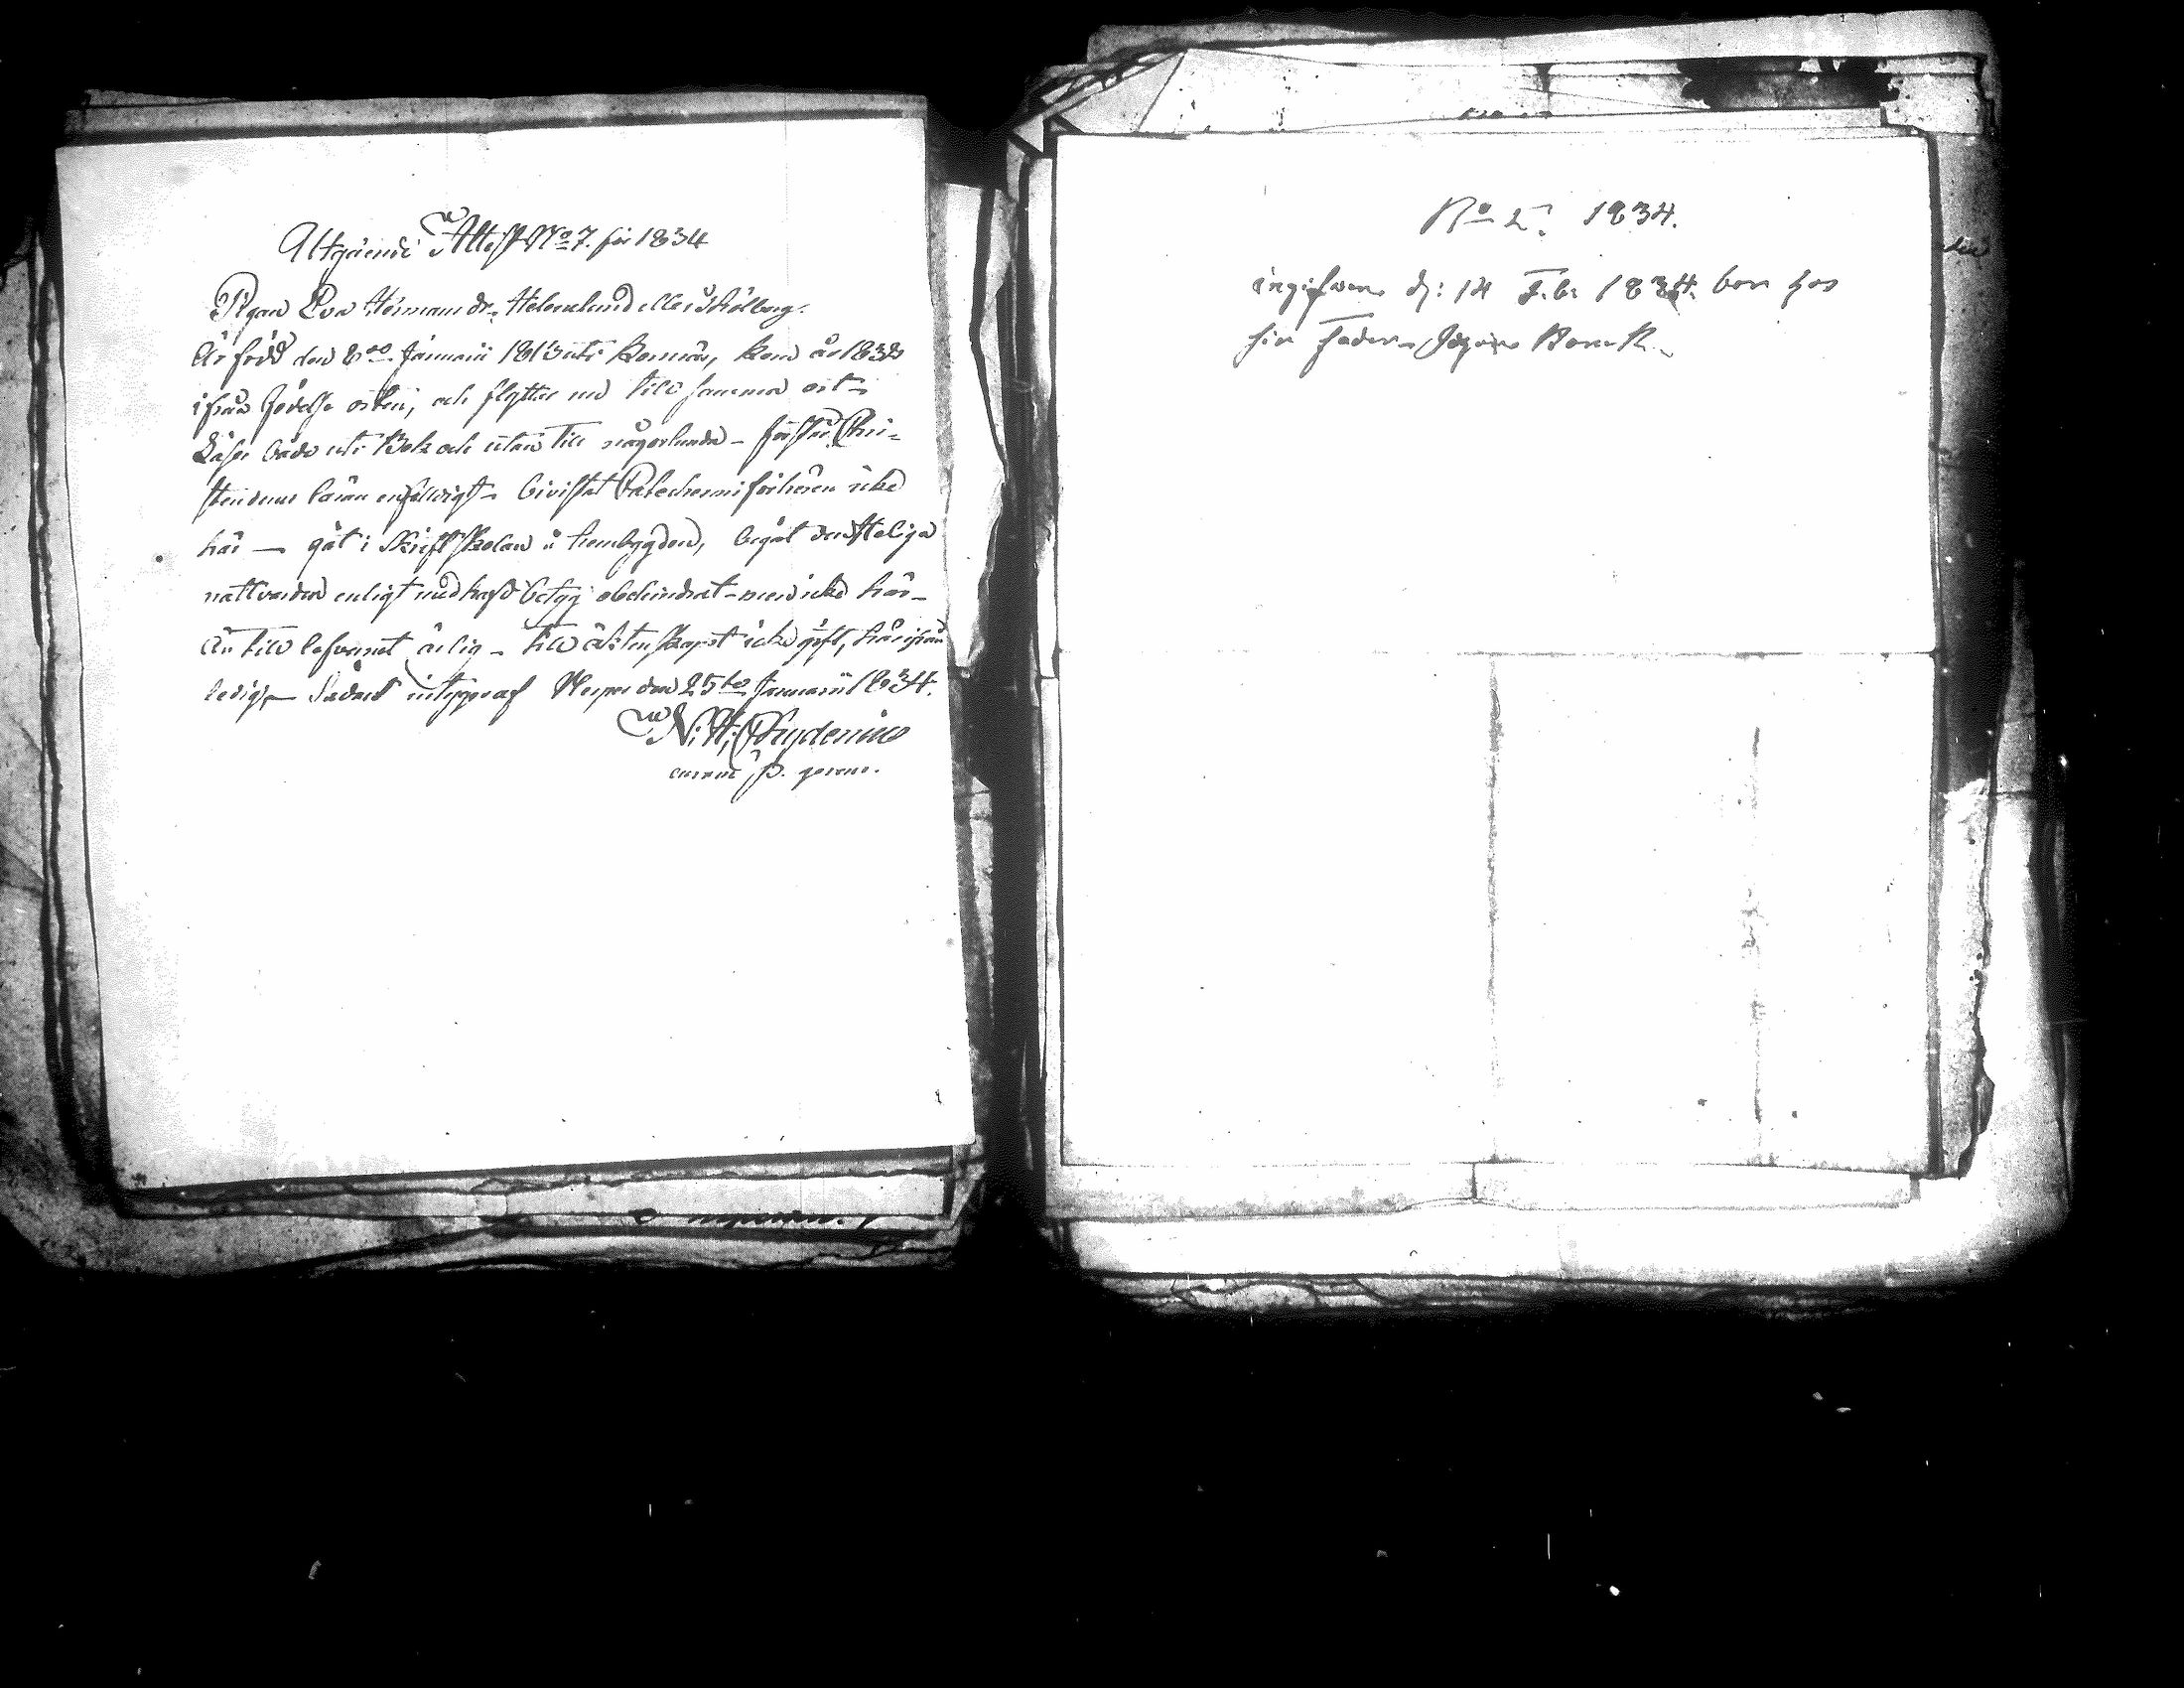 Utgående Attest No 7. för 1834
Pigan Eva Hermansdr. Helenelund eller
Är född den 8de Januarii 1813 uti Kemnäs, kom år 1832
ifrån födelse orten, och flyttar nu till samma ort –
Läser både uti Bok och utan till någorlunda – förstår Chri-
stendoms läran enfaldigt – bivistat Catechismiförhören icke
här – gåt i Skriftskolan i hembygden, begåt den Heliga
nattvarden enligt medhaft betyg obehindrat – men icke här –
Är till lefvernet ärlig – till äktenskapet icke gift, härifrån
ledig – Sådant intygar af den 25te Januarii 1834.
N. H. Chydenius
p.
No 1834.
ingifwen d: 14 Feb: 1834. bor hos
sin Fader